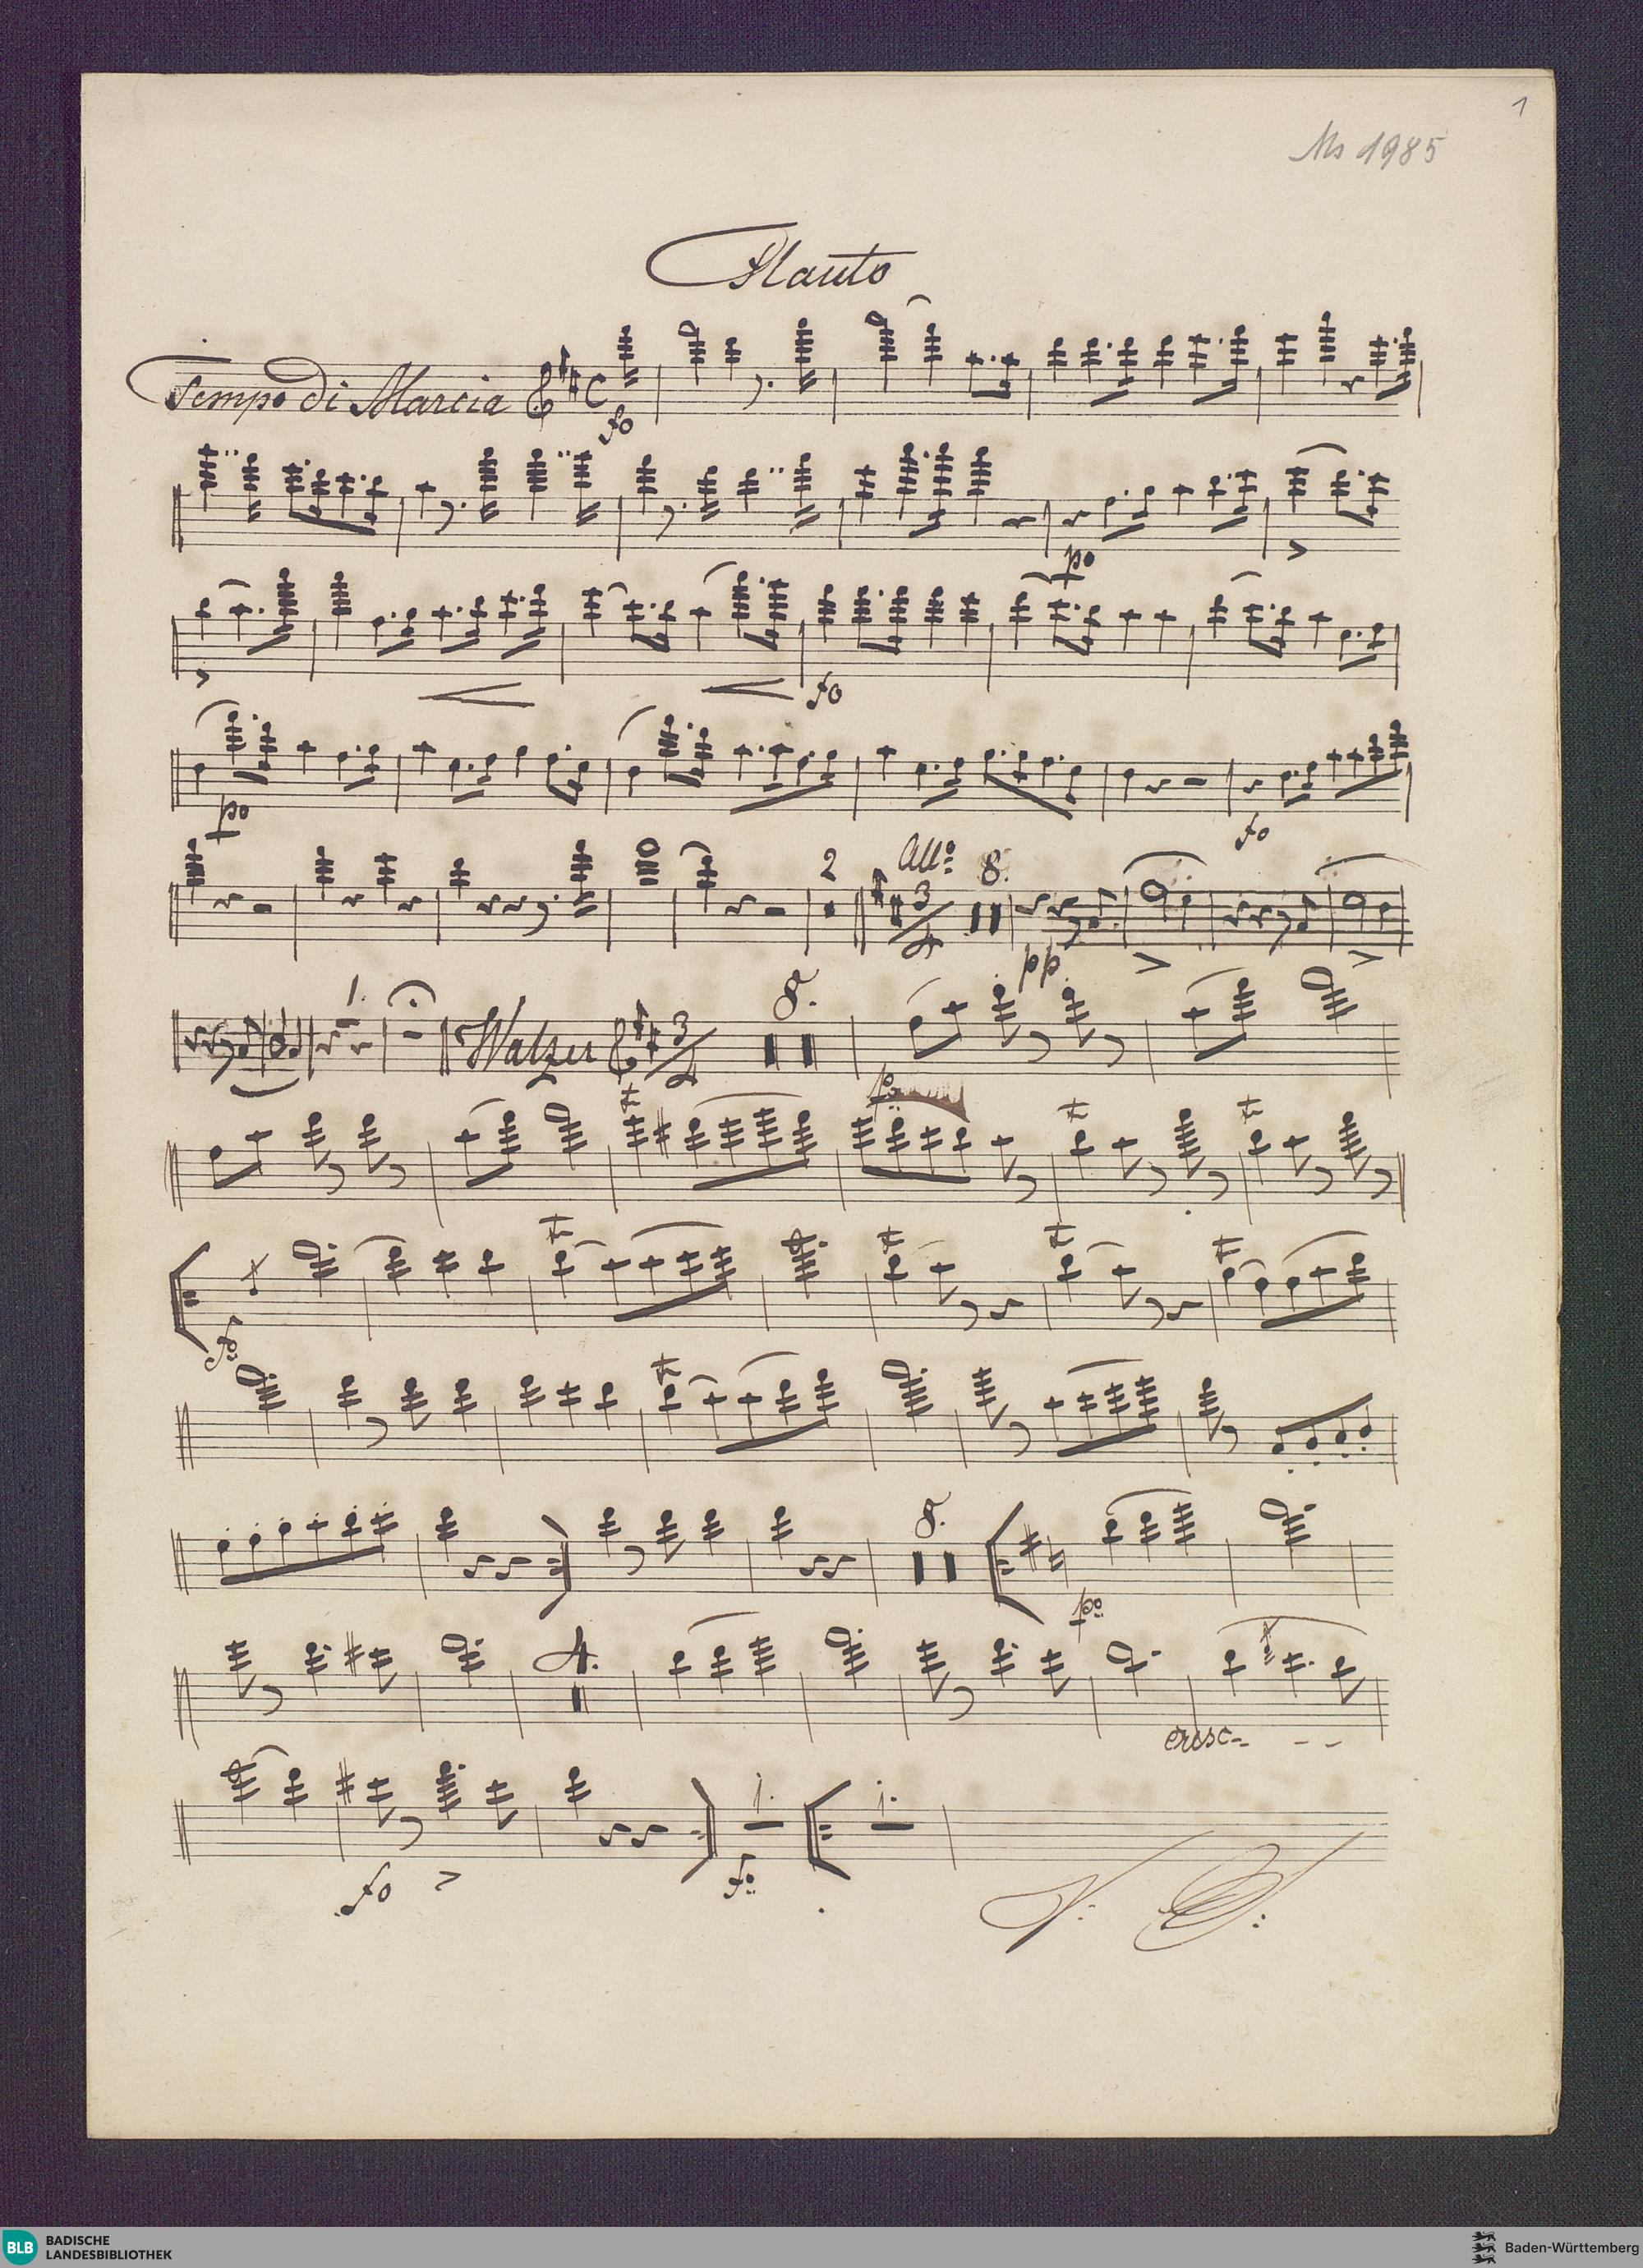 1
Ms 1985
Flauto
Tempo di Marcia C
fo
po
fo
po
fo
2 All° 3/4 8.
pp
1. Walzer 3/4 8.
p
fo
8.
po
4.
cresc--
1. 1.
fo fo
V: S:
BLB BADISCHE
LANDESBIBLIOTHEK
Baden-Württemberg